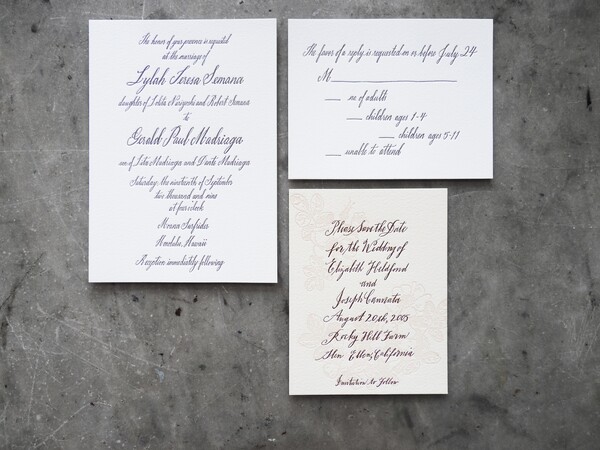 The honor of your presence is requested
at the marriage of
Lylah Teresa Semana
daughter of Lolita Noriyechi and Robert Semana
to
Gerald Paul Madriaga
son of Lita Madriaga and Dante Madriaga
Saturday, the nineteenth of September
two thousand and nine
at four o'clock
Moana Surfrider
Honolulu, Hawaii
Reception immediately following
The favor of a reply is requested on or before July 24
M
no of adults
children ages 1-4
children ages 5-11
unable to attend
Please Save the Date
for the Wedding of
Elizabeth Hildfond
and
Joseph Cannata
August 20th, 2005
Rocky Hill Farm
Glen Ellen, California
Invitation to Follow